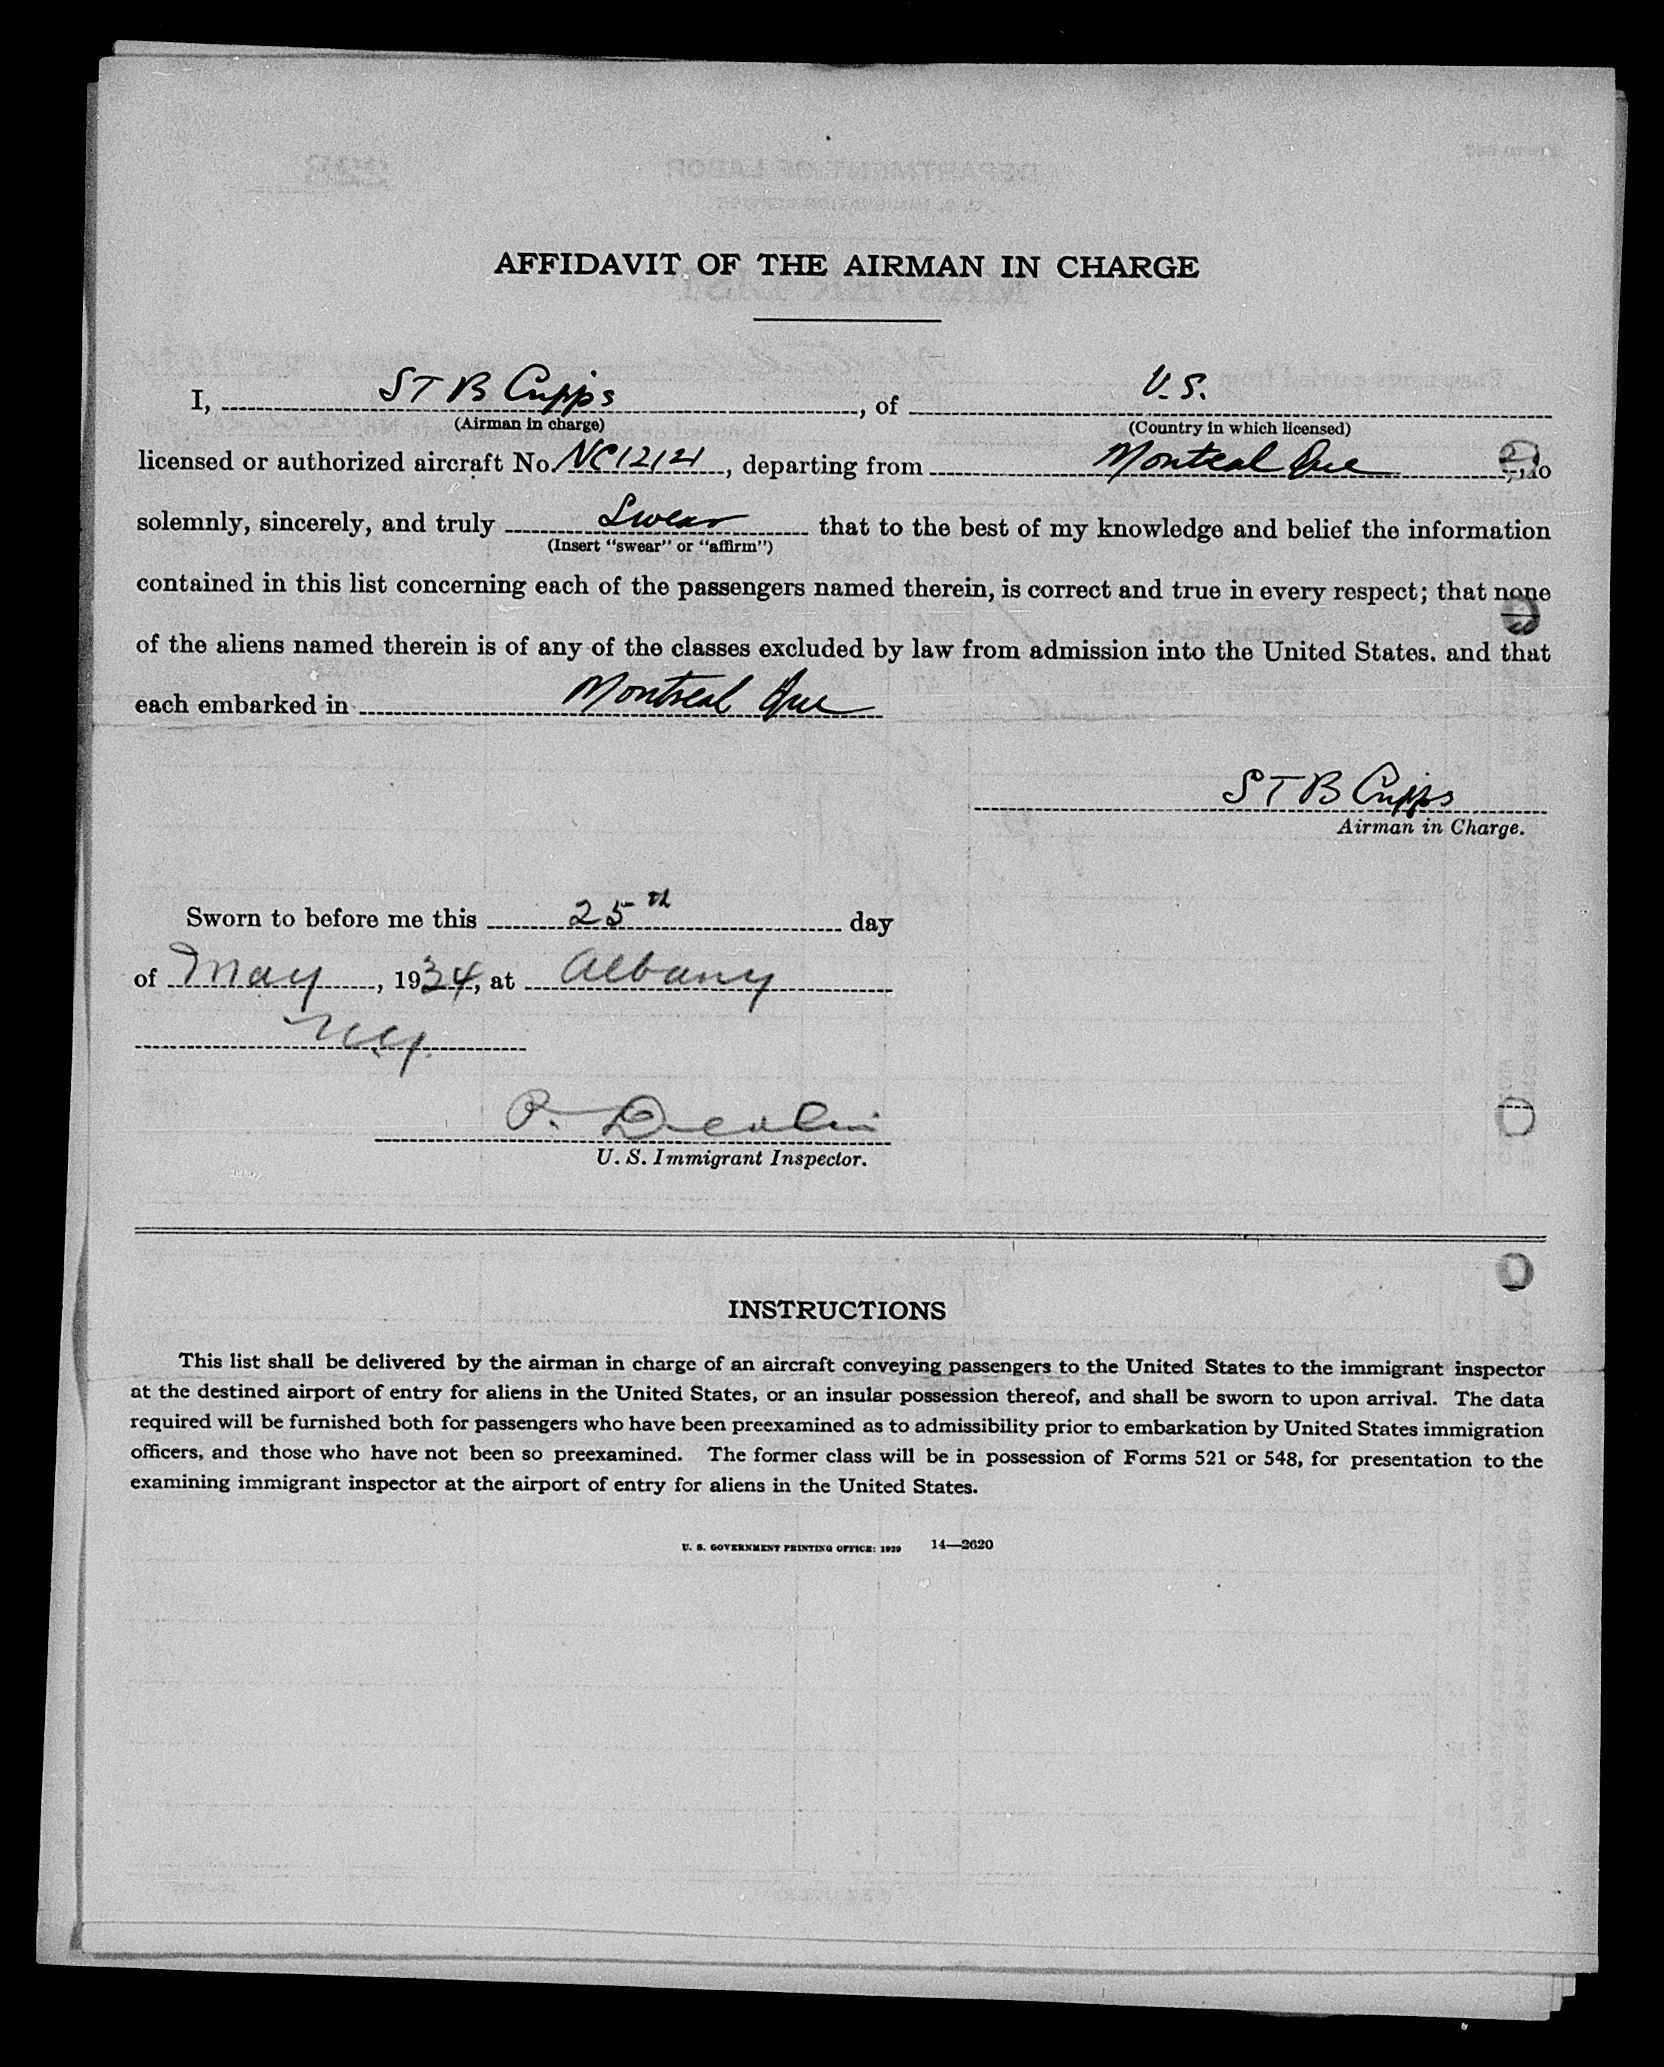 AFFIDAVIT OF THE AIRMAN IN CHARGE
I, S T B Cupps, of U. S.
(Airman in charge) (Country in which licensed)
licensed or authorized aircraft No. NC12121, departing from Montreal Que, do
solemnly, sincerely, and truly Swear that to the best of my knowledge and belief the information
(Insert "swear" or "affirm")
contained in this list concerning each of the passengers named therein, is correct and true in every respect; that none
of the aliens named therein is of any of the classes excluded by law from admission into the United States, and that
each embarked in Montreal Que
S T B Cupps
Airman in Charge.
Sworn to before me this 25th day
of May, 1934, at Albany
N.Y.
P. Devlin
U. S. Immigrant Inspector.
INSTRUCTIONS
This list shall be delivered by the airman in charge of an aircraft conveying passengers to the United States to the immigrant inspector
at the destined airport of entry for aliens in the United States, or an insular possession thereof, and shall be sworn to upon arrival. The data
required will be furnished both for passengers who have been preexamined as to admissibility prior to embarkation by United States immigration
officers, and those who have not been so preexamined. The former class will be in possession of Forms 521 or 548, for presentation to the
examining immigrant inspector at the airport of entry for aliens in the United States.
U. S. GOVERNMENT PRINTING OFFICE: 1929 14—2620